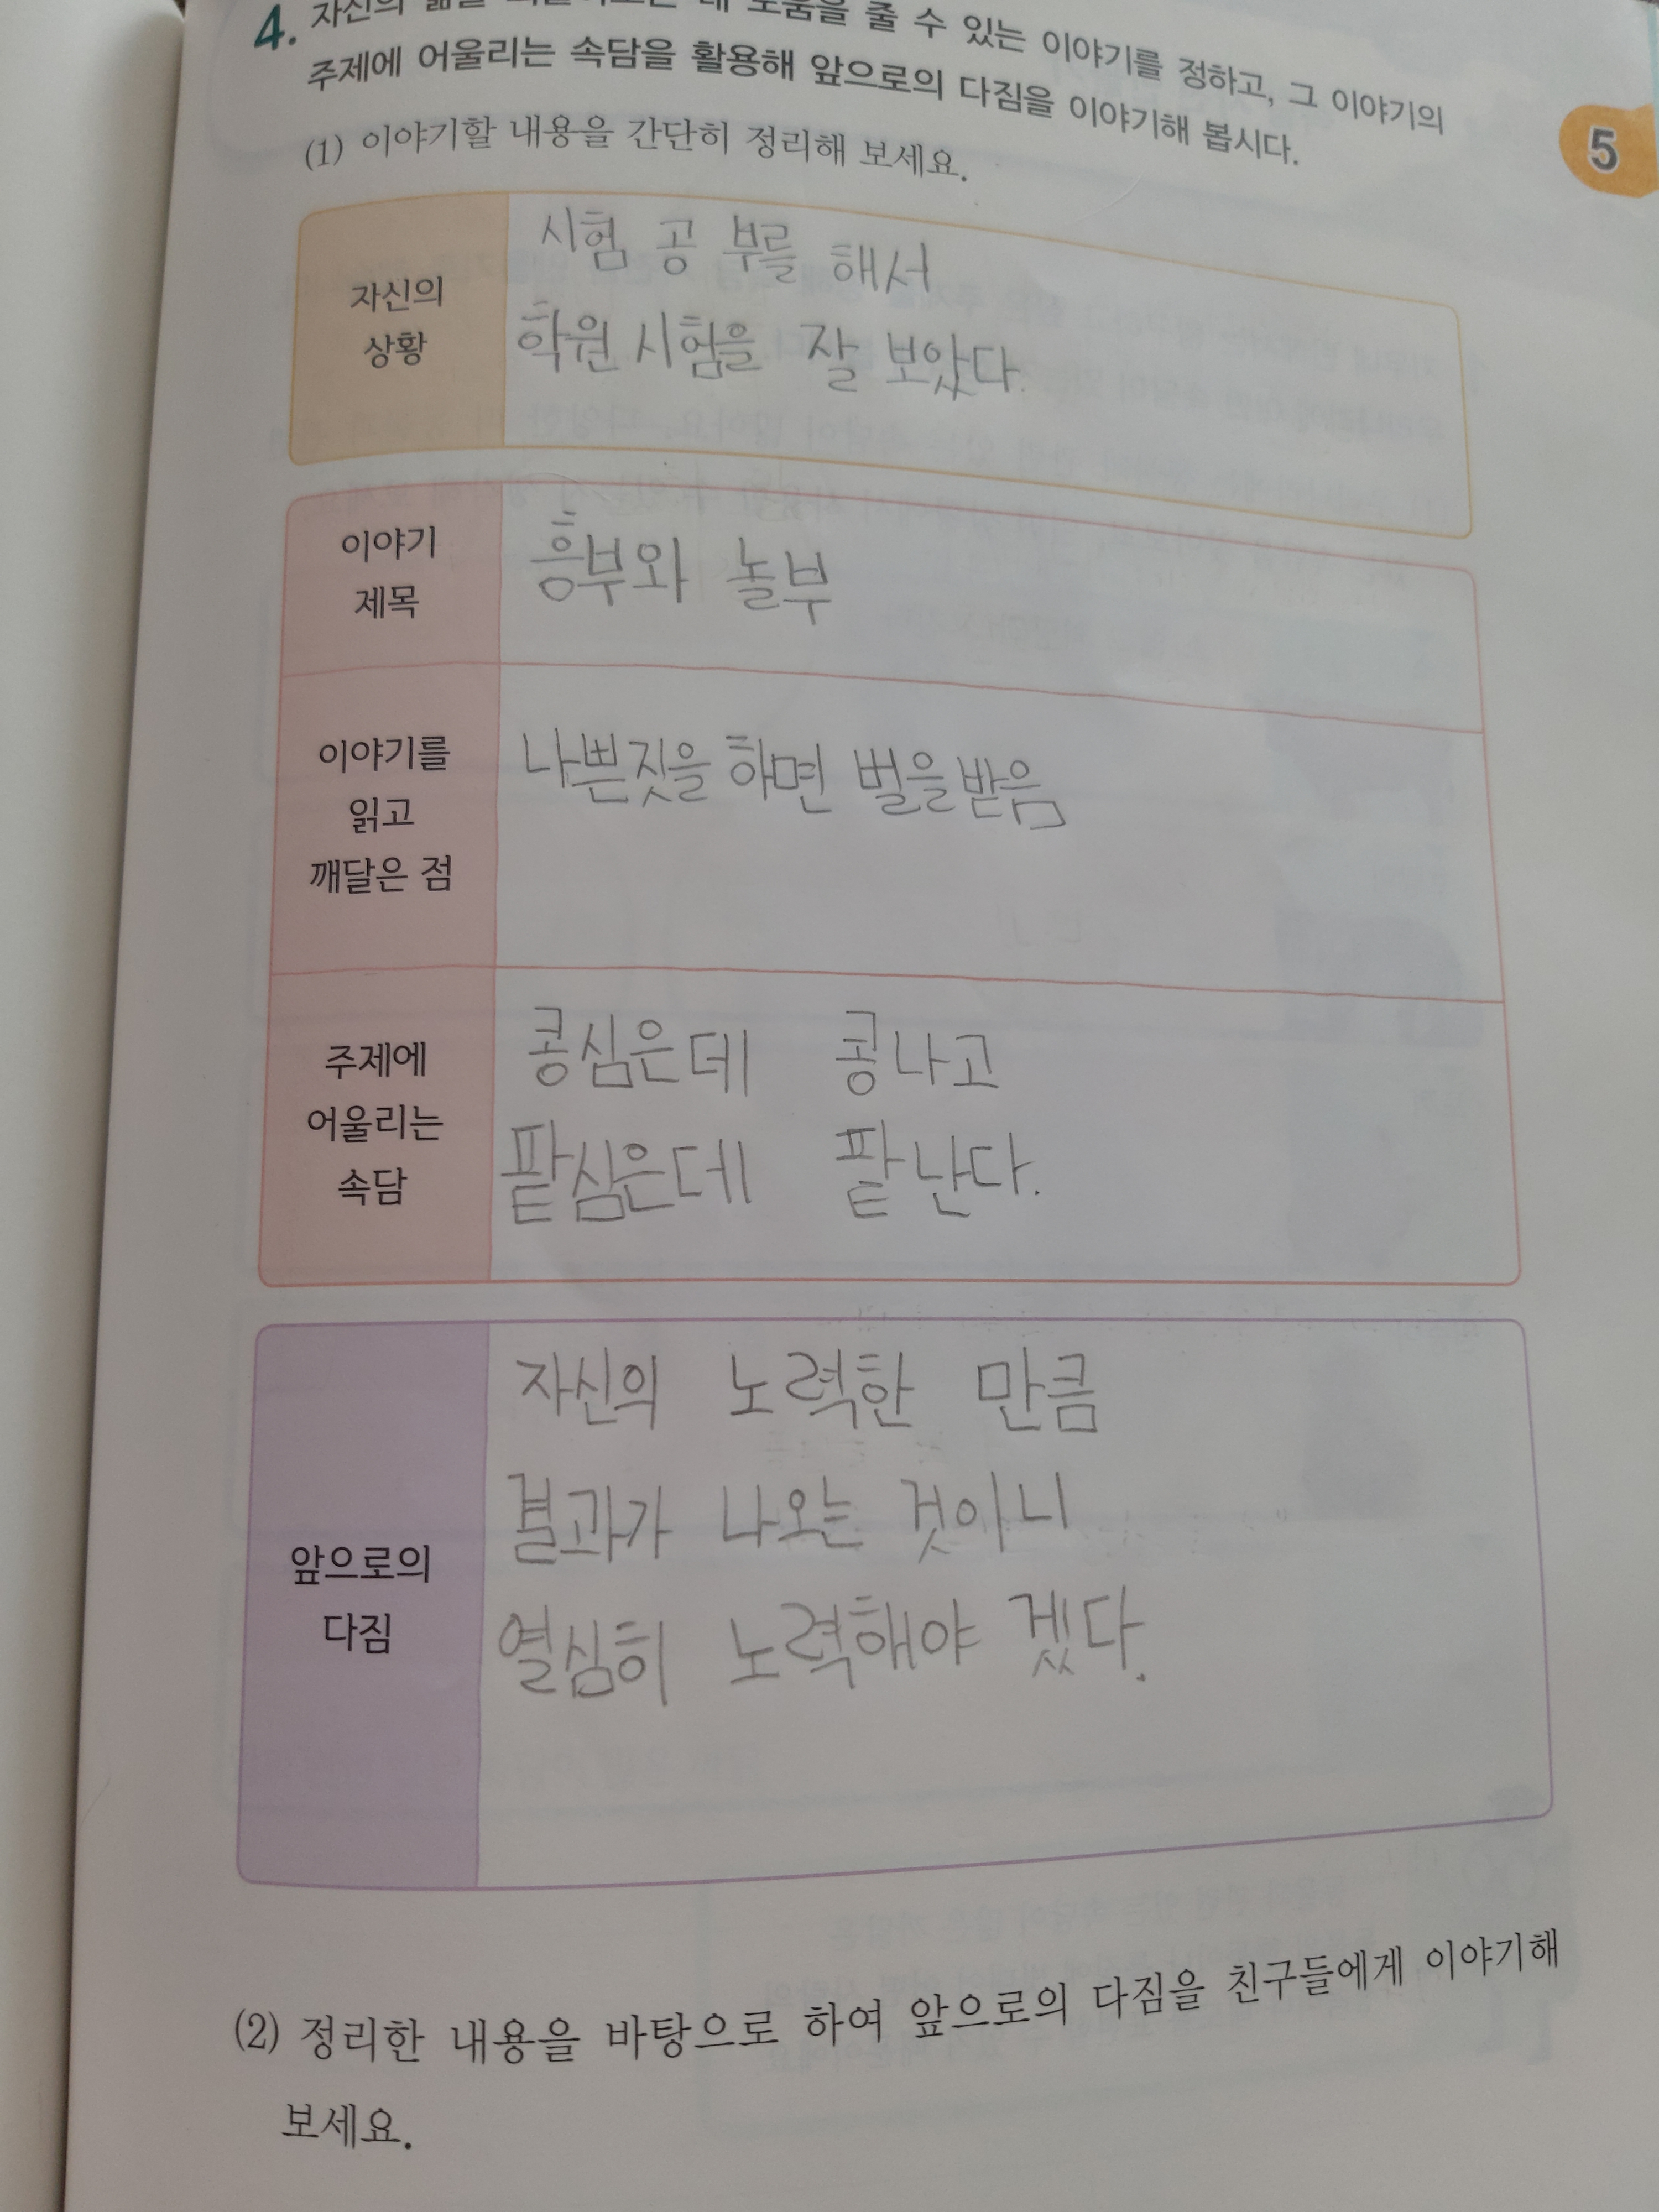 4. 자신의 삶을 되돌아보는 데 도움을 줄 수 있는 이야기를 정하고, 그 이야기의
주제에 어울리는 속담을 활용해 앞으로의 다짐을 이야기해 봅시다.
5
(1) 이야기할 내용을 간단히 정리해 보세요.
자신의
상황
시험 공 부를 해서
학원 시험을 잘 보았다.
이야기
제목
흥부와 놀부
이야기를
읽고
깨달은 점
나쁜짓을 하면 벌을받음
주제에
어울리는
속담
콩심은데 콩나고
팥심은데 팥난다.
앞으로의
다짐
자신의 노력한 만큼
결과가 나오는 것이니
열심히 노력해야 겠다.
(2) 정리한 내용을 바탕으로 하여 앞으로의 다짐을 친구들에게 이야기해
보세요.